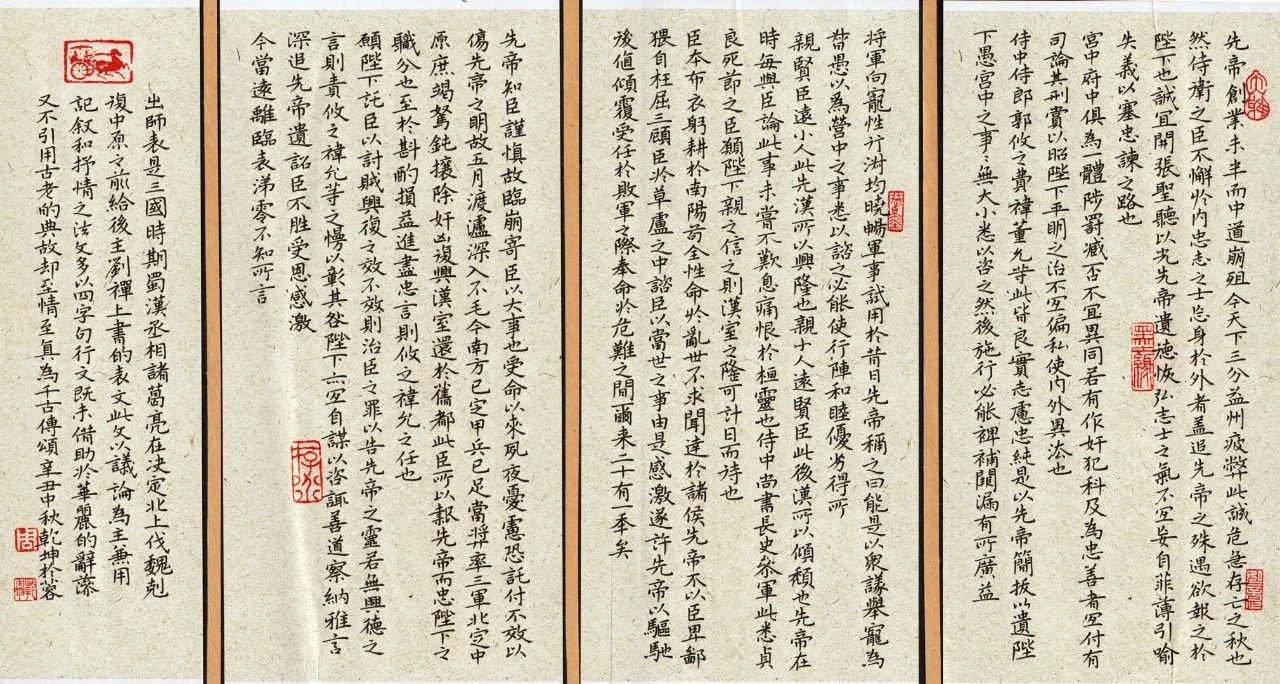 先帝創業未半而中道崩殂今天下三分益州疲弊此誠危急存亡之秋也
然侍衛之臣不懈於內忠志之士忘身於外者蓋追先帝之殊遇欲報之於
陛下也誠宜開張聖聽以光先帝遺德恢弘志士之氣不宜妄自菲薄引喻
失義以塞忠諫之路也
宮中府中俱為一體陟罰臧否不宜異同若有作奸犯科及為忠善者宜付有
司論其刑賞以昭陛下平明之治不宜偏私使內外異法也
侍中侍郎郭攸之費禕董允等此皆良實志慮忠純是以先帝簡拔以遺陛
下愚宮中之事々無大小悉以咨之然後施行必能裨補闕漏有所廣益
将軍向寵性行淑均曉暢軍事試用於昔日先帝稱之曰能是以眾議舉寵為
督愚以為營中之事悉以諮之必能使行陣和睦優劣得所
親賢臣遠小人此先漢所以興隆也親小人遠賢臣此後漢所以傾頹也先帝在
時每與臣論此事未嘗不歎息痛恨於桓靈也侍中尚書長史參軍此悉貞
良死節之臣願陛下親之信之則漢室之隆可計日而待也
臣本布衣躬耕於南陽苟全性命於亂世不求聞達於諸侯先帝不以臣卑鄙
猥自枉屈三顧臣於草廬之中諮臣以當世之事由是感激遂許先帝以驅馳
後值傾覆受任於敗軍之際奉命於危難之間爾来二十有一年矣
先帝知臣謹慎故臨崩寄臣以大事也受命以來夙夜憂慮恐託付不效以
傷先帝之明故五月渡瀘深入不毛今南方已定甲兵已足當獎率三軍北定中
原庶竭駑鈍攘除奸凶復興漢室還於舊都此臣所以報先帝而忠陛下之
職分也至於斟酌損益進盡忠言則攸之禕允之任也
願陛下託臣以討賊興復之效不效則治臣之罪以告先帝之靈若無興德之
言則責攸之禕允等之慢以彰其咎陛下亦宜自謀以咨諏善道察納雅言
深追先帝遺詔臣不胜受恩感激
今當遠離臨表涕零不知所言
出師表是三國時期蜀漢丞相諸葛亮在決定北上伐魏剋
復中原之前給後主劉禪上書的表文此文以議論為主兼用
記叙和抒情之法文多以四字句行文既未借助於華麗的辭藻
又不引用古老的典故却至情至真為千古傳頌辛丑中秋乾坤於蓉